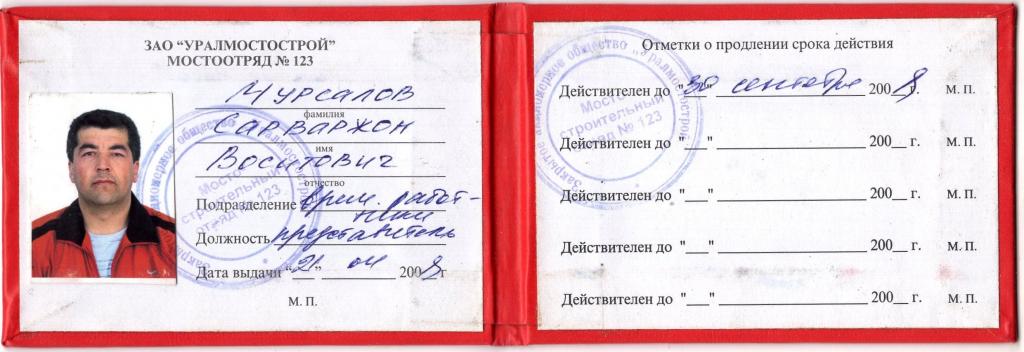 ЗАО "УРАЛМОСТОСТРОЙ"
МОСТООТРЯД № 123
Мурсалов
фамилия
Сарваржон
имя
Воситович
отчество
Подразделение врем. работ-
ники
Должность представитель
Дата выдачи "21" 04 2008 г
М. П.
Отметки о продлении срока действия
Действителен до "30" сентября 2008 г. М. П.
Действителен до "__" ____ 200__ г. М. П.
Действителен до "__" ____ 200__ г. М. П.
Действителен до "__" ____ 200__ г. М. П.
Действителен до "__" ____ 200__ г. М. П.
Закрытое акционерное общество "Уралмостострой"
Мосто-
строительный
отряд № 123
Закрытое акционерное общество "Уралмостострой"
Мосто-
строительный
отряд № 123